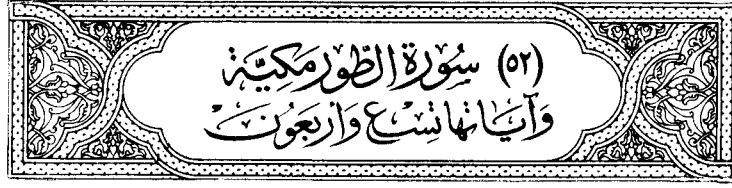 (٥٢) سُورَة الطّور مَكِيَّة
وَآيَاتها تِسْع وَأربَعُون